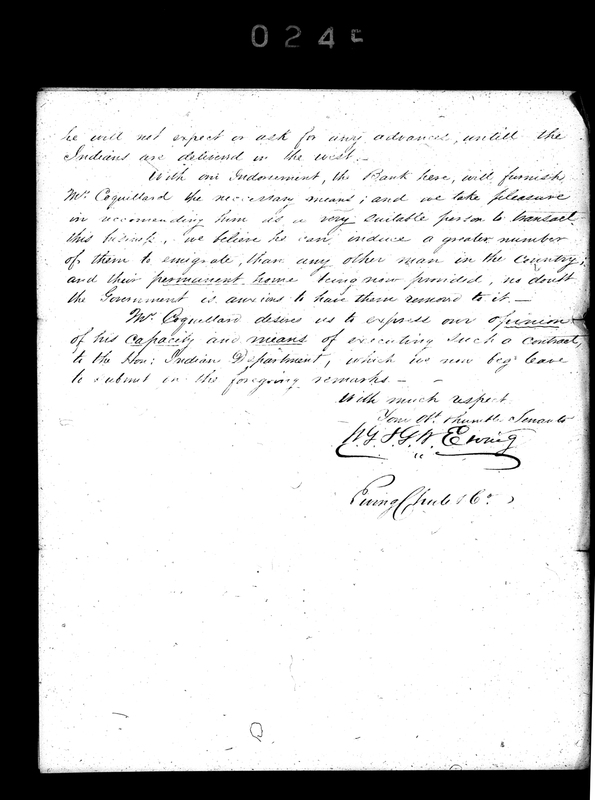 024
he will not expect or ask for any advances, untill the
Indians are deliverd in the west. —
With our Indorsement, the Bank here, will furnish
Mr. Coquillard the necessary means; and we take pleasure
in recomending him as a very suitable person to transact
this business, we believe he can, induce a greater number
of them to emigrate, than any other man in the country;
and their permanent home being now provided, no doubt
the Government is anxious to have them removd to it. —
Mr. Coquillard desires us to express our opinion
of his capacity and means of executing such a contract,
to the Hon: Indian Department, which we now beg leave
to submit in the foregoing remarks — —
With much respect
Your Ob. humble Servants
W. G. & G. W. Ewing
Ewing Chute & Co.